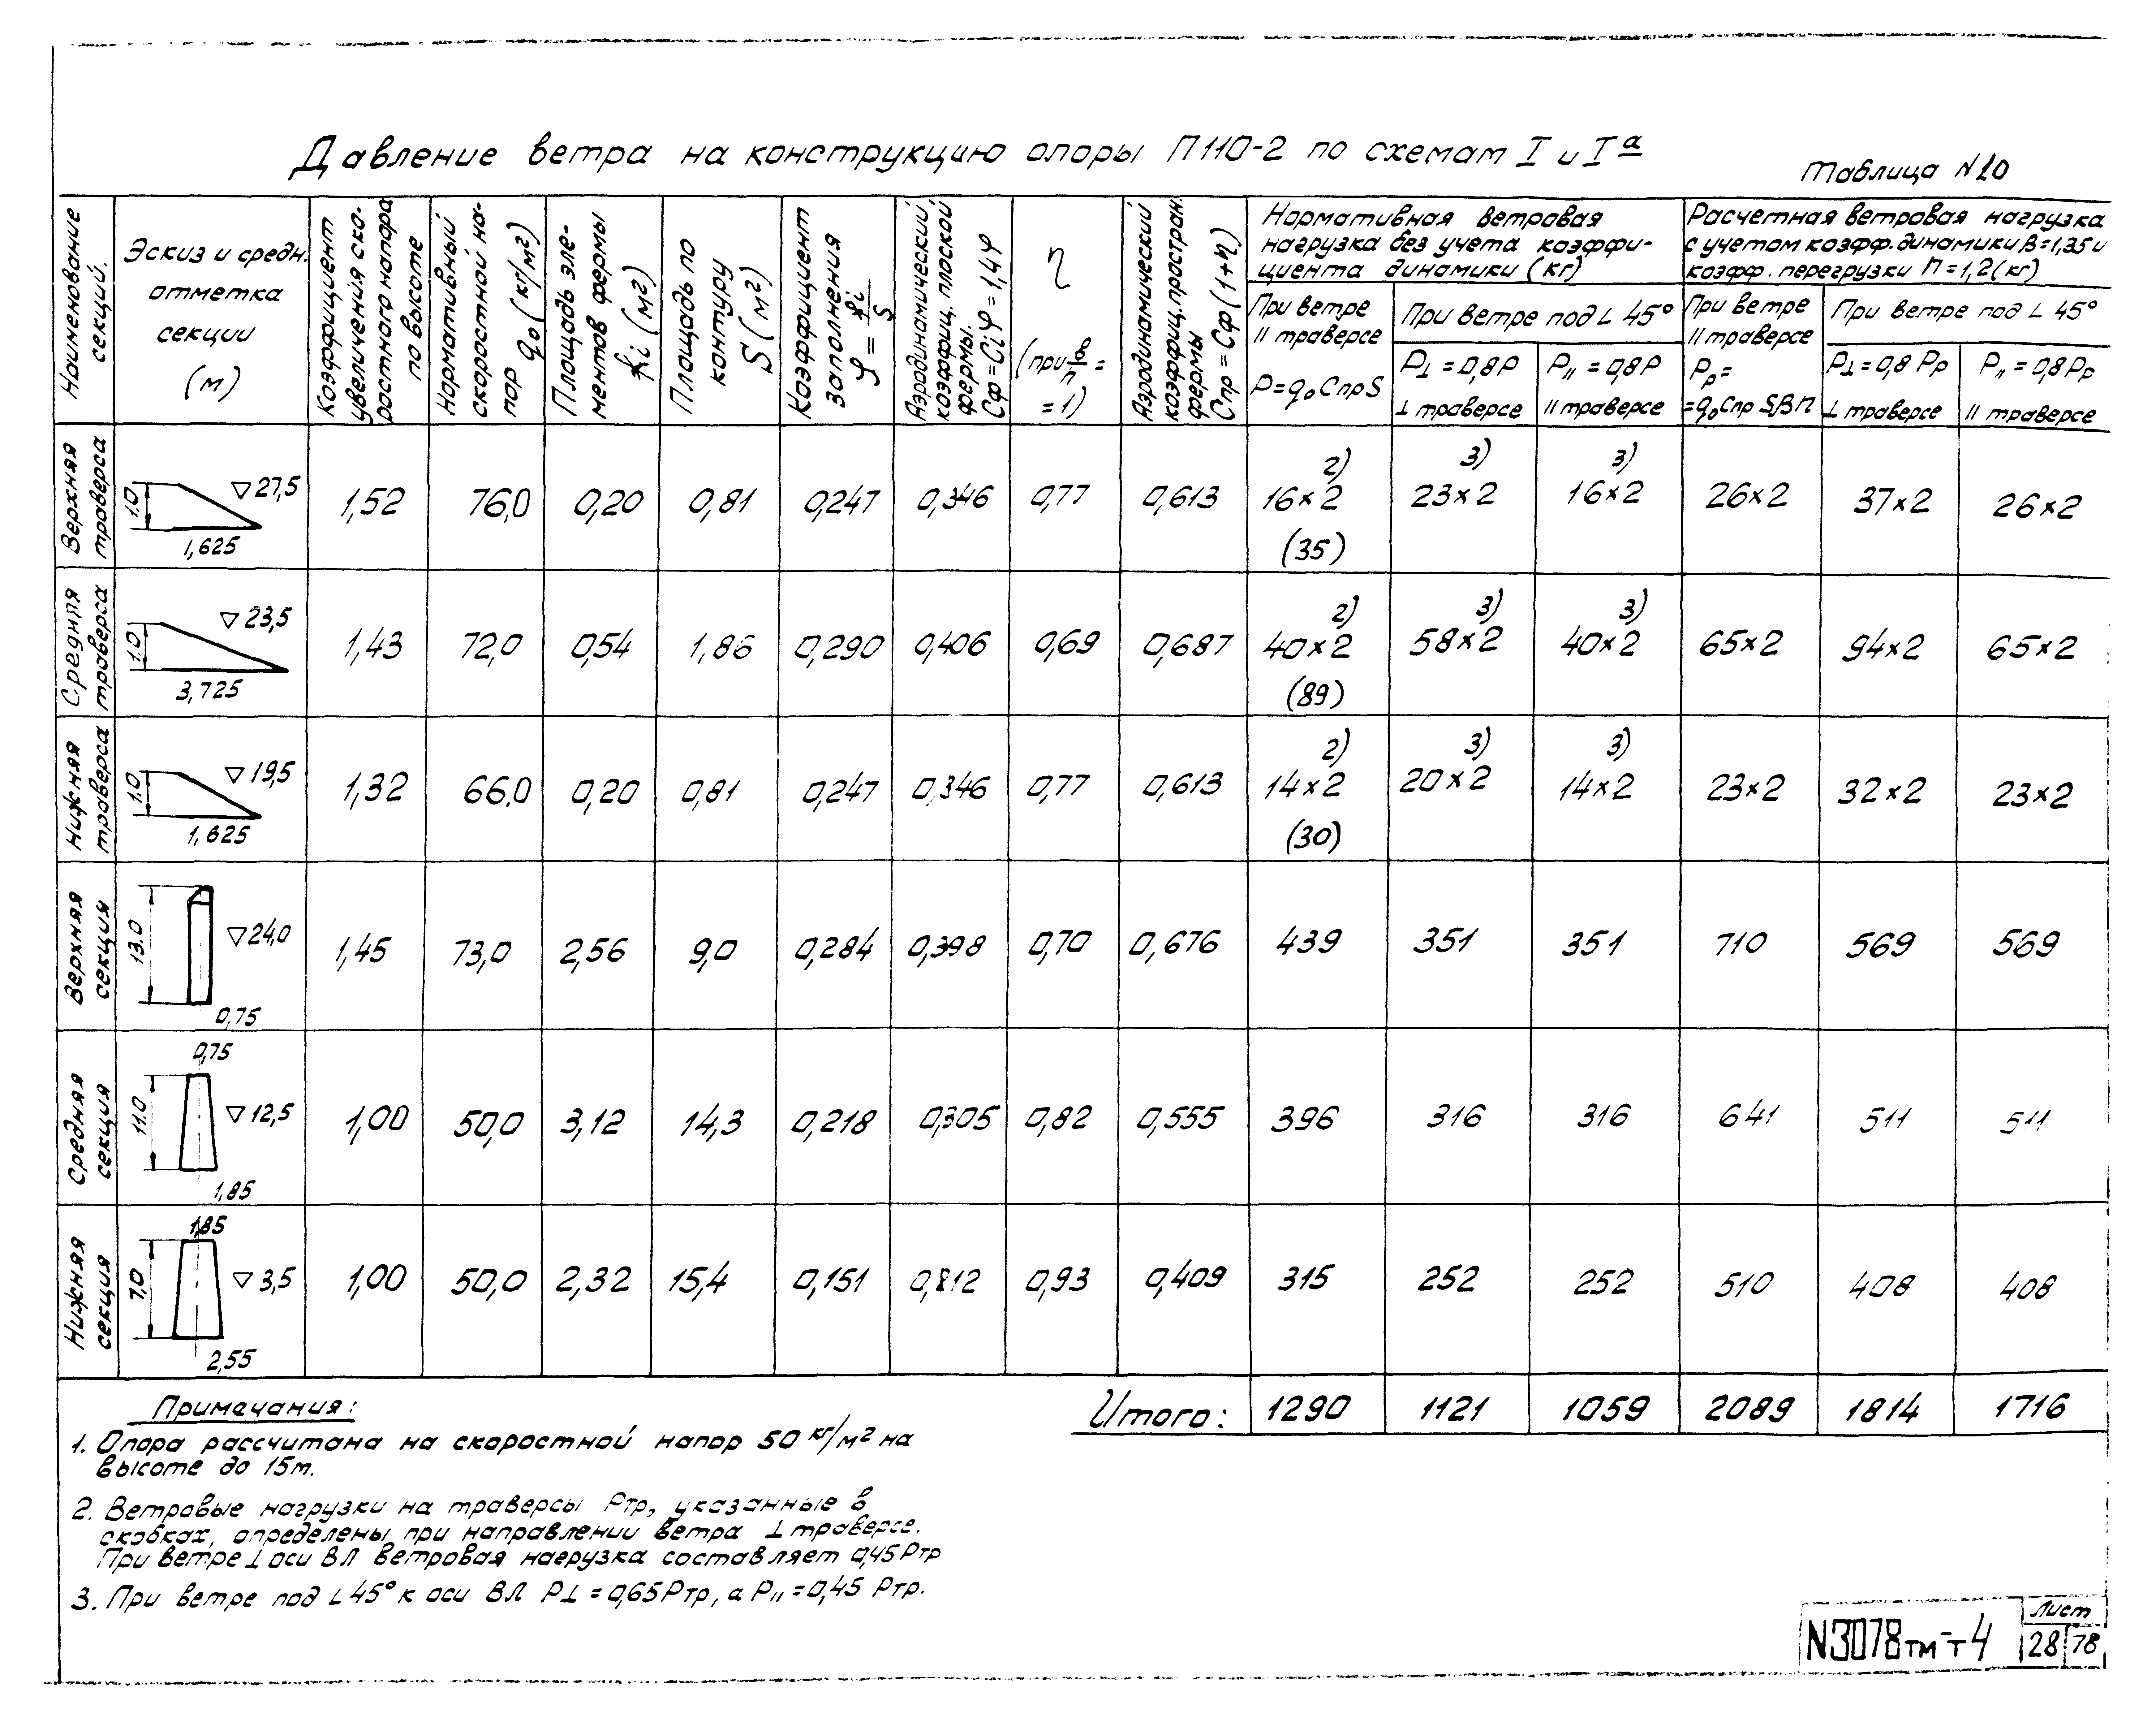 Давление ветра на конструкцию опоры П110-2 по схемам I и Iа
Таблица N20
Наименование секций.
Эскиз и средн. отметка секции (м)
Коэффициент увеличения скоростного напора по высоте
Нормативный скоростной напор q₀ (кг/м²)
Площадь элементов фермы fi (м²)
Площадь по контуру S (м²)
Коэффициент заполнения φ = fi/S
Аэродинамический коэффиц. плоской фермы. Cф = Ciφ = 1,4φ
η (при в/h = = 1)
Аэродинамический коэффиц. простран. фермы Cпр = Cф (1+η)
Нормативная ветровая нагрузка без учета коэффициента динамики (кг)
Расчетная ветровая нагрузка с учетом коэфф. динамики β=1,35 и коэфф. перегрузки n=1,2 (кг)
При ветре || траверсе P=q₀CпрS
При ветре под ∠ 45°
P⊥ = 0,8P ⊥ траверсе
P|| = 0,8P || траверсе
При ветре || траверсе Pр= =q₀Cпр Sβn
При ветре под ∠ 45°
P⊥=0,8 Pр ⊥ траверсе
P|| = 0,8Pр || траверсе
Верхняя траверса 1,0 ▽27,5 1,625 1,52 76,0 0,20 0,81 0,247 0,346 0,77 0,613 16×2 2) (35) 23×2 3) 16×2 3) 26×2 37×2 26×2
Средняя траверса 1.0 ▽23,5 3,725 1,43 72,0 0,54 1,86 0,290 0,406 0,69 0,687 40×2 2) (89) 58×2 3) 40×2 3) 65×2 94×2 65×2
Нижняя траверса 1.0 ▽19,5 1,625 1,32 66,0 0,20 0,81 0,247 0,346 0,77 0,613 14×2 2) (30) 20×2 3) 14×2 3) 23×2 32×2 23×2
Верхняя секция 13.0 ▽24,0 0,75 1,45 73,0 2,56 9,0 0,284 0,398 0,70 0,676 439 351 351 710 569 569
Средняя секция 0,75 11.0 ▽12,5 1,85 1,00 50,0 3,12 14,3 0,218 0,305 0,82 0,555 396 316 316 641 511 511
Нижняя секция 1,85 7,0 ▽3,5 2,55 1,00 50,0 2,32 15,4 0,151 0,812 0,93 0,409 315 252 252 510 408 408
Итого: 1290 1121 1059 2089 1814 1716
Примечания:
1. Опора рассчитана на скоростной напор 50 кг/м² на
высоте до 15м.
2. Ветровые нагрузки на траверсы Pтр, указанные в
скобках, определены при направлении ветра ⊥ траверсе.
При ветре ⊥ оси ВЛ ветровая нагрузка составляет 0,45Pтр
3. При ветре под ∠45° к оси ВЛ P⊥ = 0,65Pтр, а P|| = 0,45 Pтр.
N3078тм-т4
Лист
28 78